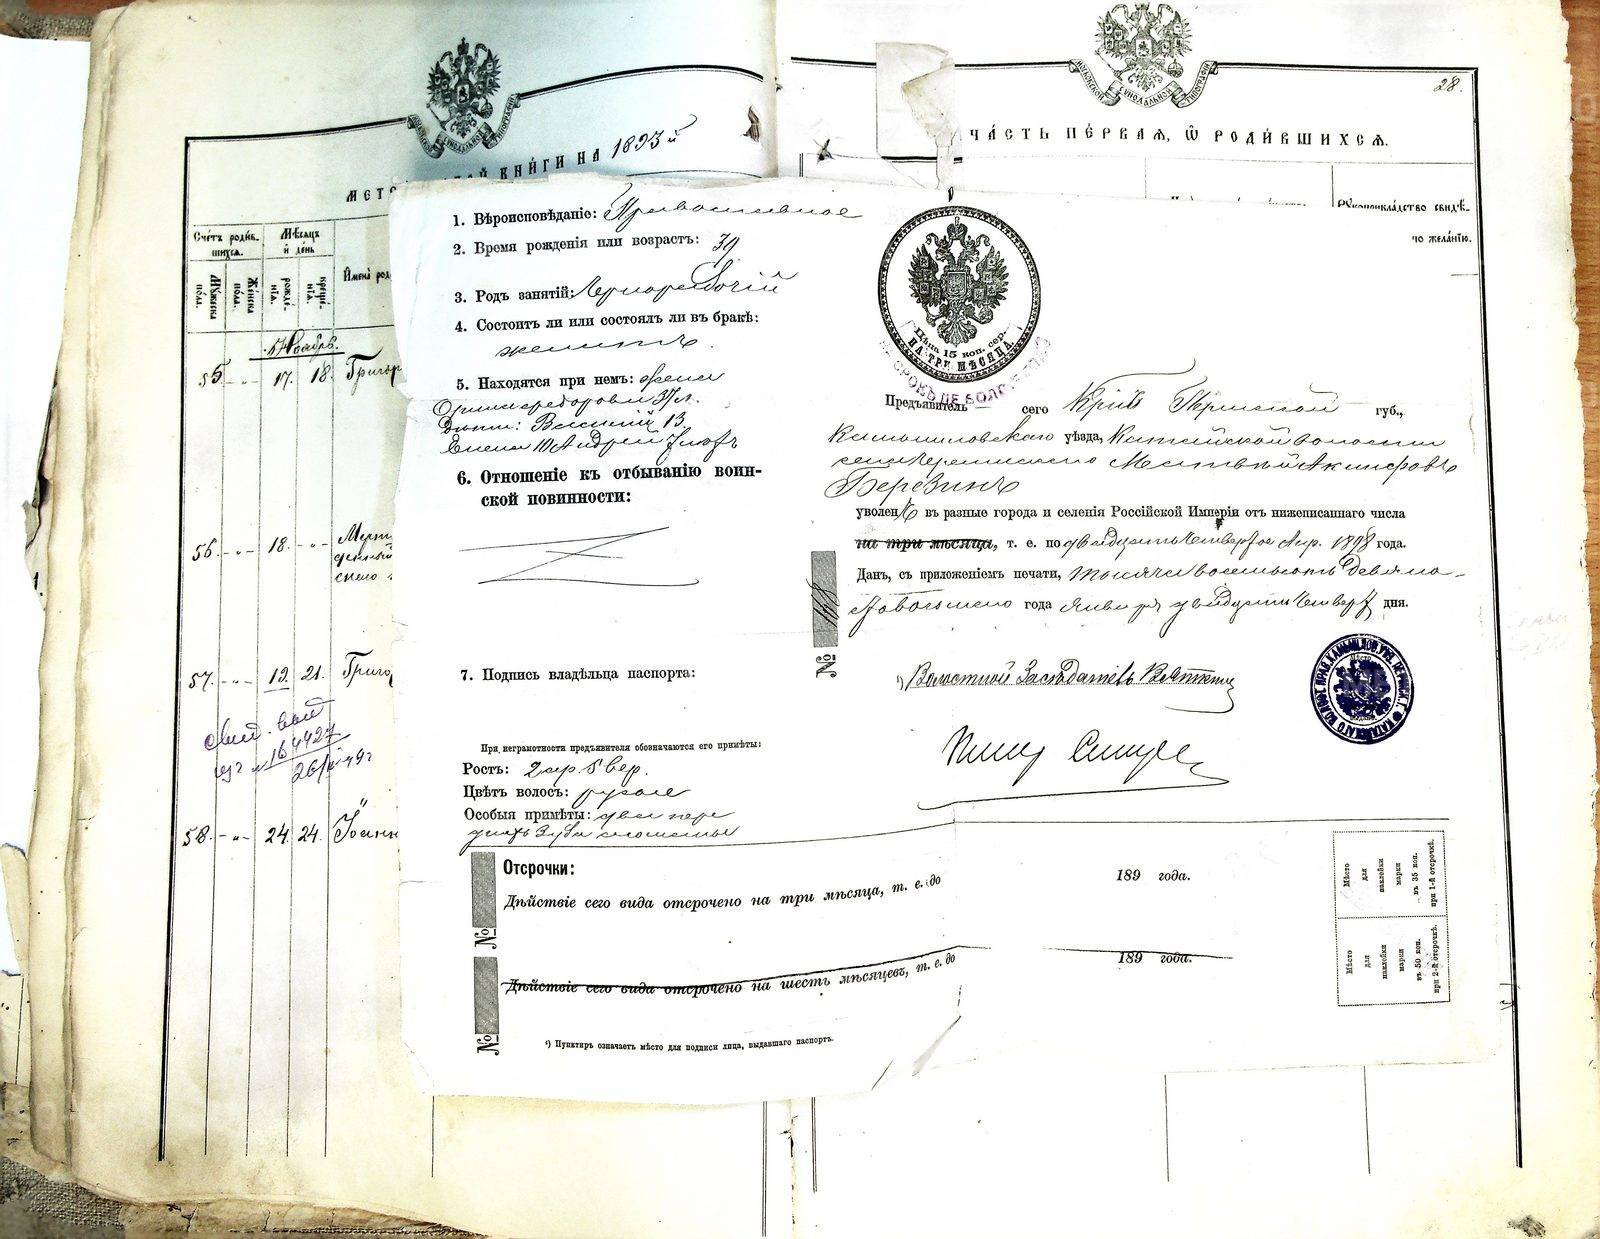 МОСКОВСКОЙ СѴНОДАЛЬНОЙ ТИПОГРАФІИ
КНИ́ГИ НА 1893 й
Сче́тъ роди́в-
шихсѧ.
Мѣсѧцъ
и день
Му́жеска
по́ла.
Же́нска
по́ла.
рожде́-
нїѧ.
креще́-
нїѧ.
Ноябрь.
55. -"- 17. 18. Григор
56. -"- 18. -"-
57. -"- 19. 21. Григо
58. -"- 24. 24. Іоанн
28.
МОСКОВСКОЙ СѴНОДАЛЬНОЙ ТИПОГРАФІИ
ЧА́СТЬ ПЕ́РВАѦ, Ѽ РОДИ́ВШИХСѦ.
Рукоприкла́дство свидѣ́-
по жела́нїю.
1. Вѣроисповѣданіе: Православное
2. Время рожденія или возрастъ: 39
3. Родъ занятій: Чернорабочій
4. Состоитъ ли или состоялъ ли въ бракѣ:
женатъ.
5. Находятся при немъ: жена
Федорова 37 л.
Дѣти: Василій 13
Елена 10 Андрей 7 лѣтъ
6. Отношеніе къ отбыванію воин-
ской повинности:
7. Подпись владѣльца паспорта:
При неграмотности предъявителя обозначаются его примѣты:
Ростъ: 2 ар. 5 вер.
Цвѣтъ волосъ: русые
Особыя примѣты: два пере
днихъ зуба сломаны
Отсрочки:
Дѣйствіе сего вида отсрочено на три мѣсяца, т. е. до 189 года.
№
Дѣйствіе сего вида отсрочено на шесть мѣсяцевъ, т. е. до 189 года.
№
¹) Пунктиръ означаетъ мѣсто для подписи лица, выдавшаго паспортъ.
Цѣна 15 коп. сер.
НА ТРИ МѢСЯЦА.
Предъявитель сего Кр-нъ Пермской губ.,
Камышловскаго уѣзда, Катайской волости
села Матвей Акинфовъ
Березинъ
уволенъ въ разные города и селенія Россійской Имперіи отъ нижеписаннаго числа
на три мѣсяца, т. е. по двадцать четвертое Апр. 1898 года.
Данъ, съ приложеніемъ печати, тысяча восемьсотъ девяно-
стовосьмого года Января двадцать четверт дня.
№ 168
¹) Волостной Засѣдатель Вяткин
Мѣсто
для
наклейки
марки
въ 35 коп.
при 1-й отсрочкѣ.
Мѣсто
для
наклейки
марки
въ 50 коп.
при 2-й отсрочкѣ.